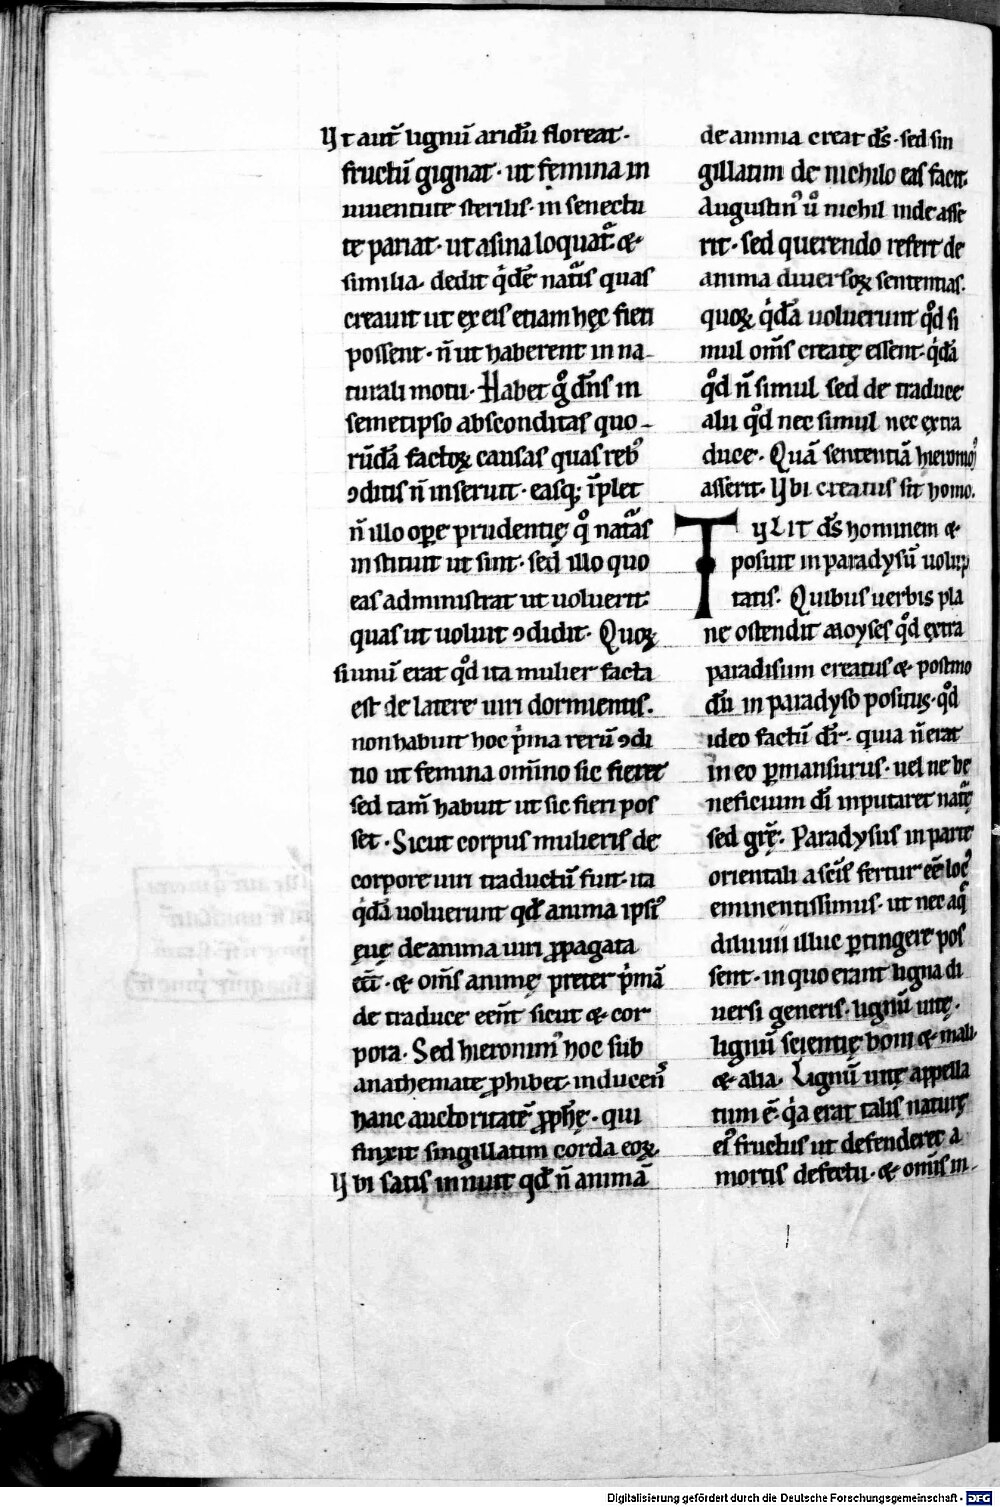 Vt aut̄ lignū aridū floreat·
fructū gignat· ut femina in
iuuentute sterilis· in senectu
te pariat· ut asina loquat᷑ &·
similia· dedit qͥdē natͣis quas
creauit ut ęx eis etiam hęc fieri
possent· n̄ ut haberent in na-
turali motu· Habet gͦ dn̄s in
semetipso absconditas quo-
rūdā factoꝝ causas quas rebꝰ
ꝯditis n̄ inseruit· easqꝫ īplet
n̄ illo oꝑe prudentię qͦ natͣas
instituit ut sint· sed illo quo
eas administrat ut uoluerit·
quas ut uoluit ꝯdidit· Quoꝝ
siunū erat qͦd ita mulier facta
est de latere uiri dormientis.
non habuit hoc pͥma rerū ꝯdi
tio ut femina omīno sic fieret
sed tam̄ habuit ut sic fieri pos
set· Sicut corpus mulieris de
corpore uiri traductū fuit· ita
qͥdā uoluerunt qđ anima ipsiꝰ
ęuę de anima uiri ꝓpagata
eēt· & om̄s animę preter pͥmā
de traduce eēnt sicut & cor
pora· Sed hieronimꝰ hoc sub
anathemate ꝓhibet· inducens̄
hanc auctoritatē ꝓph̄ę· qui
finxit singillatim corda eoꝝ.
Vbi satis innuit qđ n̄ animā
de anima creat ds̄· sed sin
gillatim de nichilo eas facit·
Augustinꝰ ū nichil inde asse
rit· sed querendo refert de
anima diuersoꝝ sententias.
quoꝝ qͥdā uoluerunt qͦd si
mul om̄s creatę essent· qͥdā
qͦd n̄ simul sed de traduce
alii qͦd nec simul nec ex tra
duce· Quā sententiā hieronimꝰ
asserit· Vbi creatus sit homo.
TVLIT ds̄ hominem &
posuit in paradysū uolup
tatis. Quibus uerbis pla
ne ostendit moyses qͦd extra
paradisum creatus & postmo
dū in paradyso positus· qͦd
ideo factū dr̄· quia n̄ erat
in eo ꝑmansurus· uel ne be
neficium dī inputaret natͣę
sed gr̄ę. Paradysus in parte
orientali a scīs fertur eē locꝰ
eminentissimus· ut nec aqͣ
diluuii illuc ꝑtingere pos
sent· in quo erant ligna di
uersi generis· lignū uitę·
lignū scientię boni & mali
& alia· Lignū uitę appella
tum ē· qͥa erat talis naturę
eiꝰ fructus ut defenderet a
mortis defectu· & om̄is in-
Digitalisierung gefördert durch die Deutsche Forschungsgemeinschaft - DFG